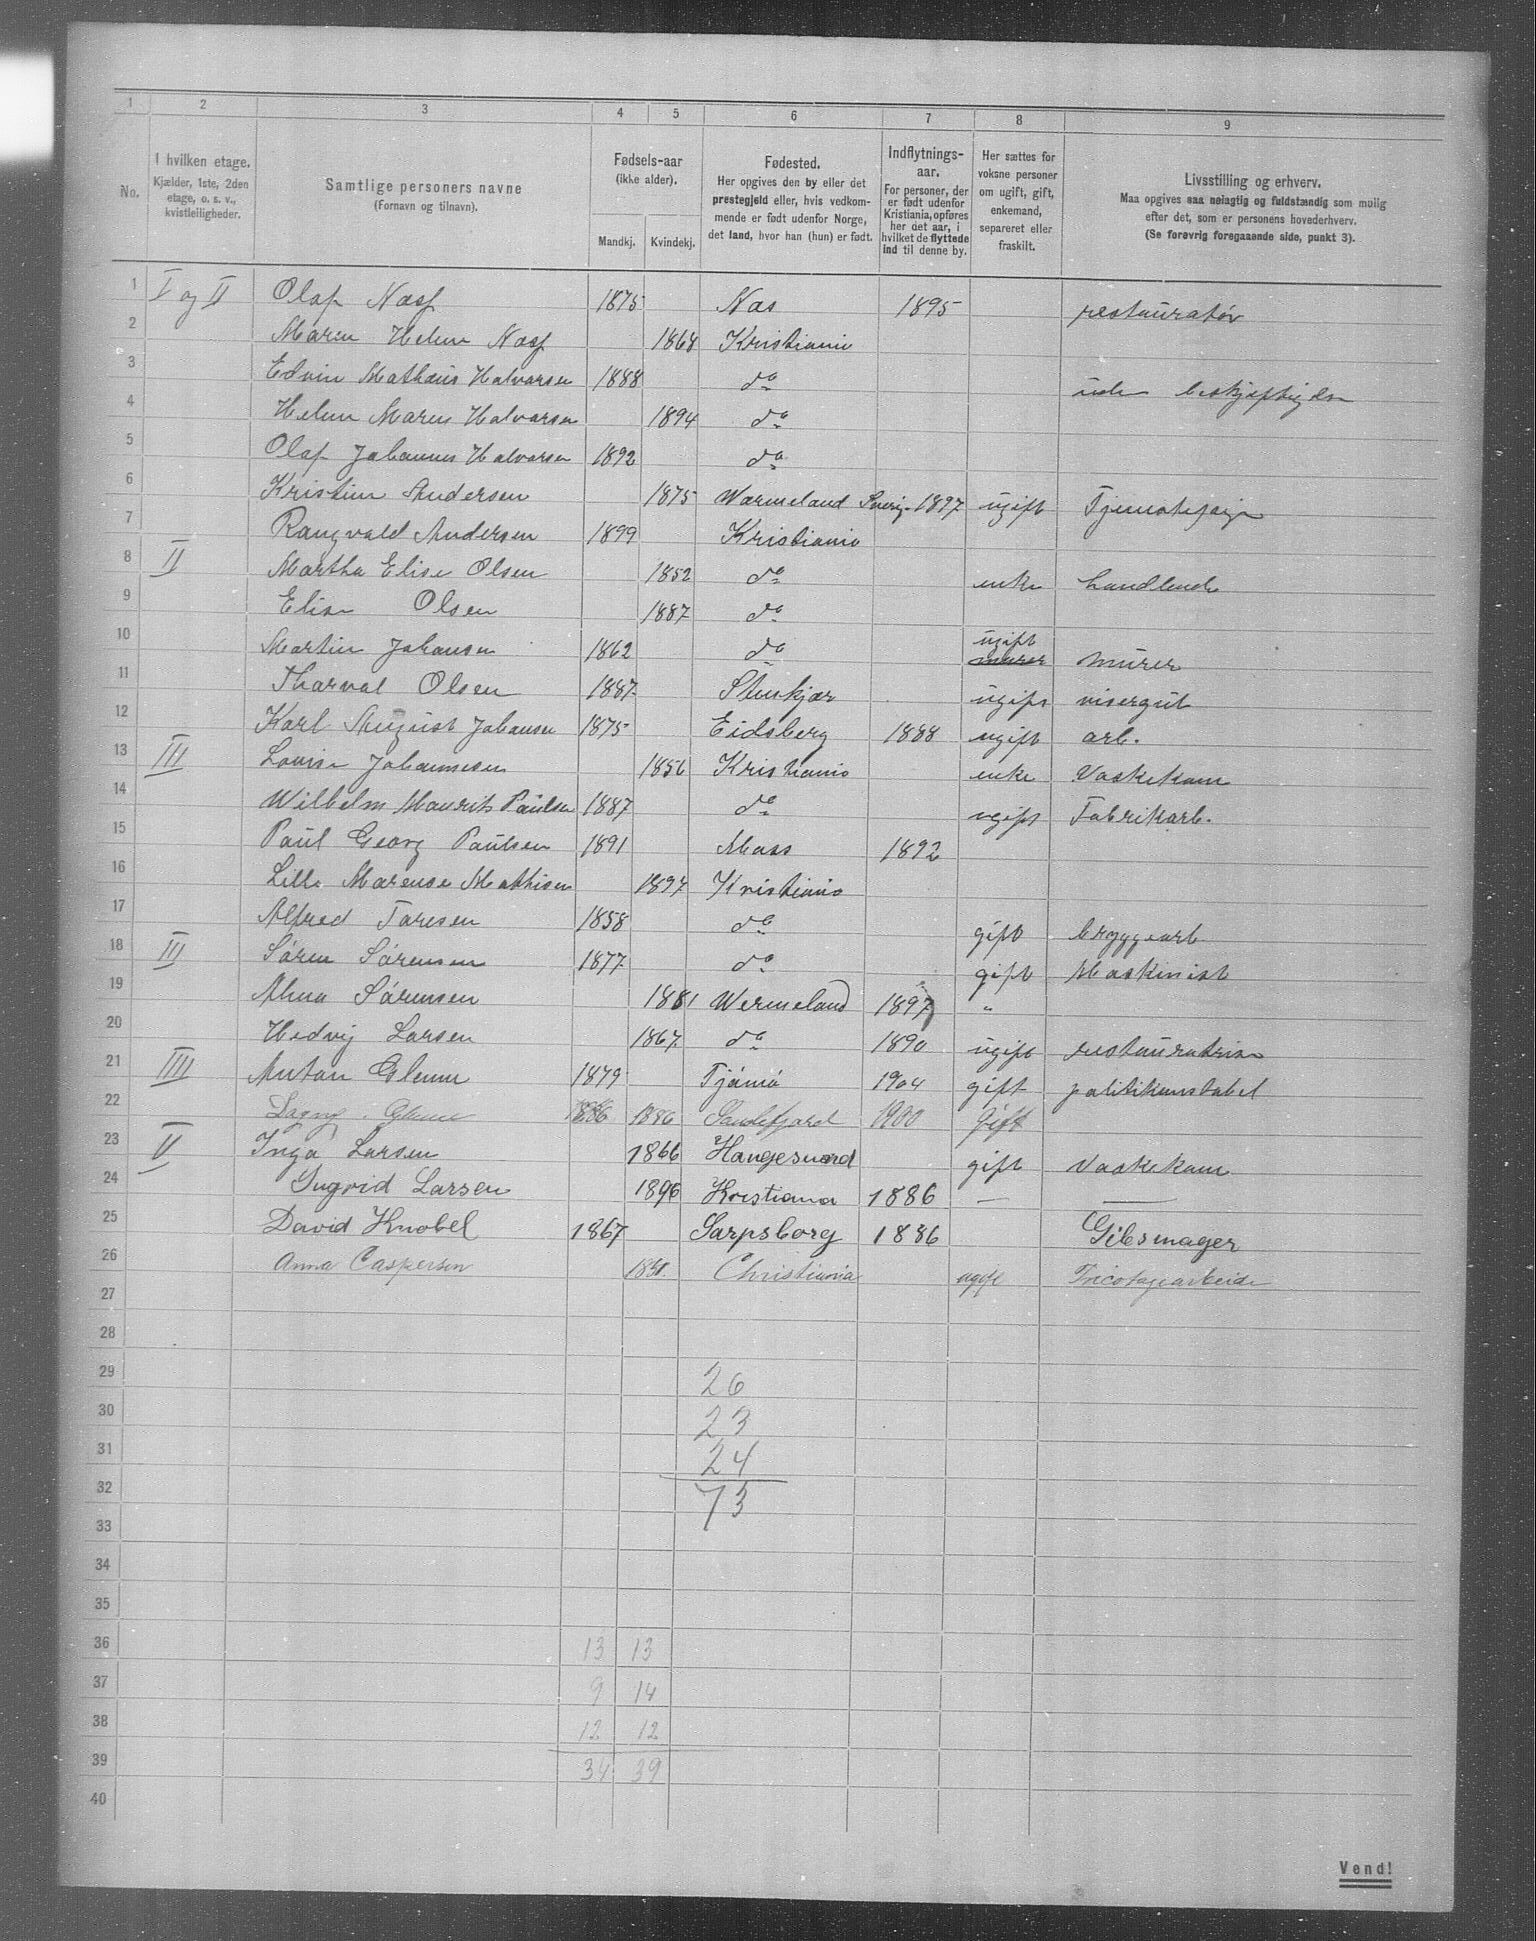 1 2 3 4 5 6 7 8 9
No.
I hvilken etage.
Kjælder, 1ste, 2den
etage, o. s. v.,
kvistleiligheder.
Samtlige personers navne
(Fornavn og tilnavn).
Fødsels-aar
(ikke alder).
Mandkj. Kvindekj.
Fødested.
Her opgives den by eller det
prestegjeld eller, hvis vedkom-
mende er født udenfor Norge,
det land, hvor han (hun) er født.
Indflytnings-
aar.
For personer, der
er født udenfor
Kristiania, opføres
her det aar, i
hvilket de flyttede
ind til denne by.
Her sættes for
voksne personer
om ugift, gift,
enkemand,
separeret eller
fraskilt.
Livsstilling og erhverv.
Maa opgives saa nøiagtig og fuldstændig som mulig
efter det, som er personens hovederhverv.
(Se forøvrig foregaaende side, punkt 3).
1 I og II Olaf Næss 1875 Næs 1895 restauratør
2 Maren Helene Næss 1868 Kristiania
3 Edvin Mathæus Halvorsen 1888 do uden beskjeftigelse
4 Helene Maren Halvorsen 1894 do
5 Olaf Johannes Halvorsen 1892 do
6 Kristine Andersen 1875 Wærmeland Sverig 1897 ugift Tjenestepige
7 Rangvald Andersen 1899 Kristiania
8 II Martha Elise Olsen 1852 do enke handlende
9 Elise Olsen 1887 do
ugift
10 Martin Johansen 1862 do murer murer
11 Tharval Olsen 1887 Stenkjær ugift visergut
12 Karl August Johansen 1875 Eidsberg 1888 ugift arb.
13 III Lovise Johannesen 1856 Kristiania enke Vaskekone
14 Wilhelm Maurits Paulsen 1887 do ugift Fabrikarb.
15 Paul Georg Paulsen 1891 Moss 1892
16 Lilli Marense Mathisen 1897 Kristiania
17 Alfred Toresen 1858 do gift bryggearb
18 III Søren Sørensen 1877 do gift Maskinist
19 Alma Sørensen 1881 Wermeland 1897 "
20 Hedvig Larsen 1867 do 1890 ugift restauratrise
21 IIII Anton Glenne 1879 Tjømø 1904 gift politikonstabel
22 Glenne 1886 1886 Sandefjord 1900 Gift
23 V Inga Larsen 1866 Haugesund gift Vaskekone
24 Ingrid Larsen 1896 Kristiana 1886 — —
25 David Knobel 1867 Sarpsborg 1886 Gibsmager
26 Anna Caspersen Christiania ugift Tricotagearbeide
27
28
29 26
30 23
31 24
32 73
33
34
35
36 13 13
37 9 14
38 12 12
39 34 39
40
Vend!